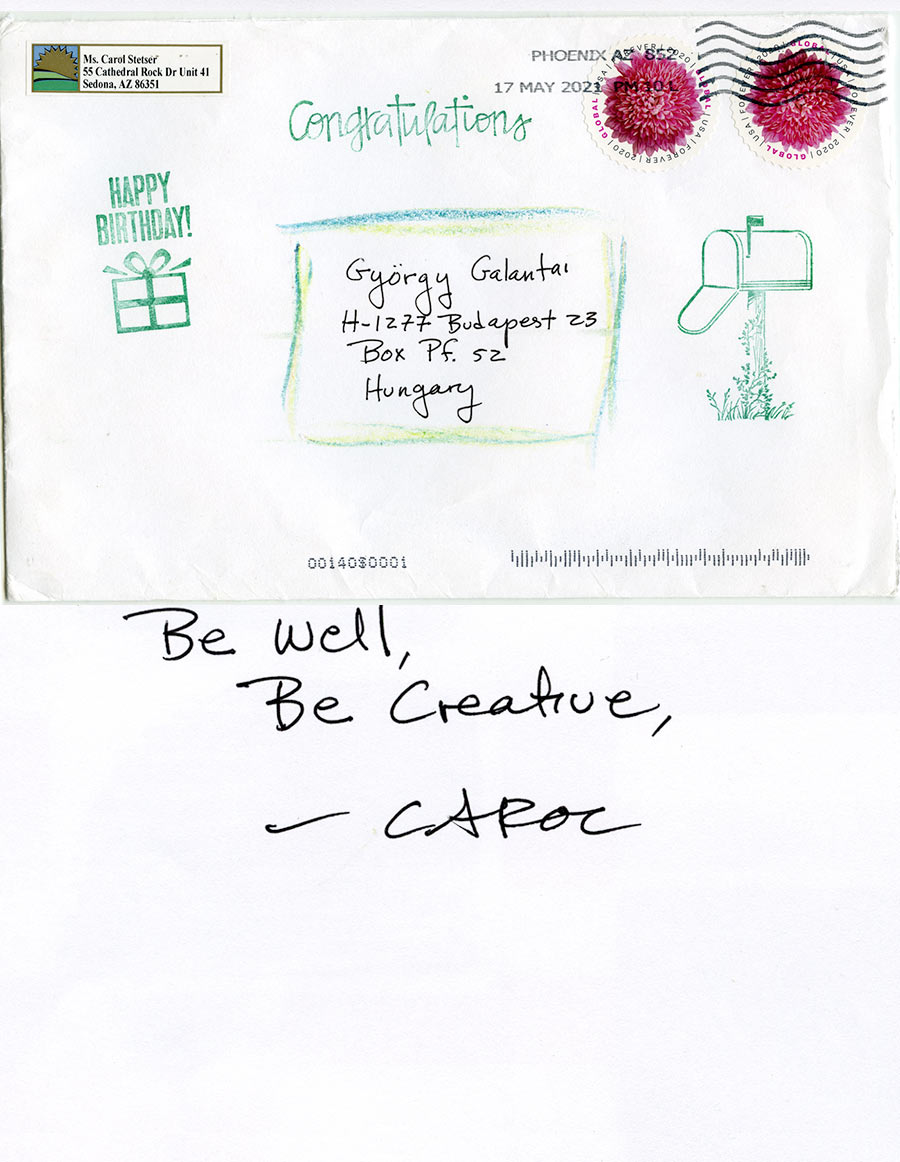 Ms. Carol Stetser
55 Cathedral Rock Dr Unit 41
Sedona, AZ 86351
PHOENIX AZ 852
17 MAY 2021 PM 10 L
GLOBAL | USA | FOREVER | 2020
GLOBAL | USA | FOREVER | 2020
Congratulations
HAPPY
BIRTHDAY!
György Galantai
H-1277 Budapest 23
Box Pf. 52
Hungary
00140$0001
Be Well,
Be Creative,
— CAROL